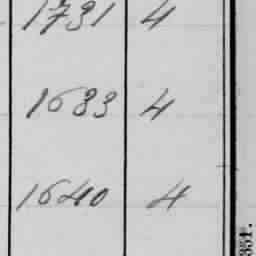 1731 4
1633 4
1640 4
351.